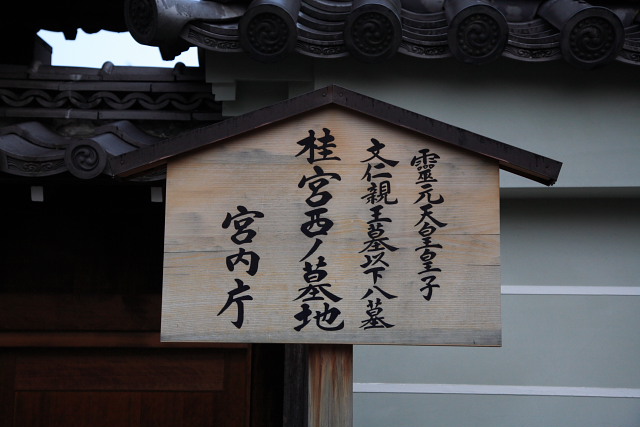 靈元天皇皇子
文仁親王墓以下八墓
桂宮西ノ墓地
宮内庁